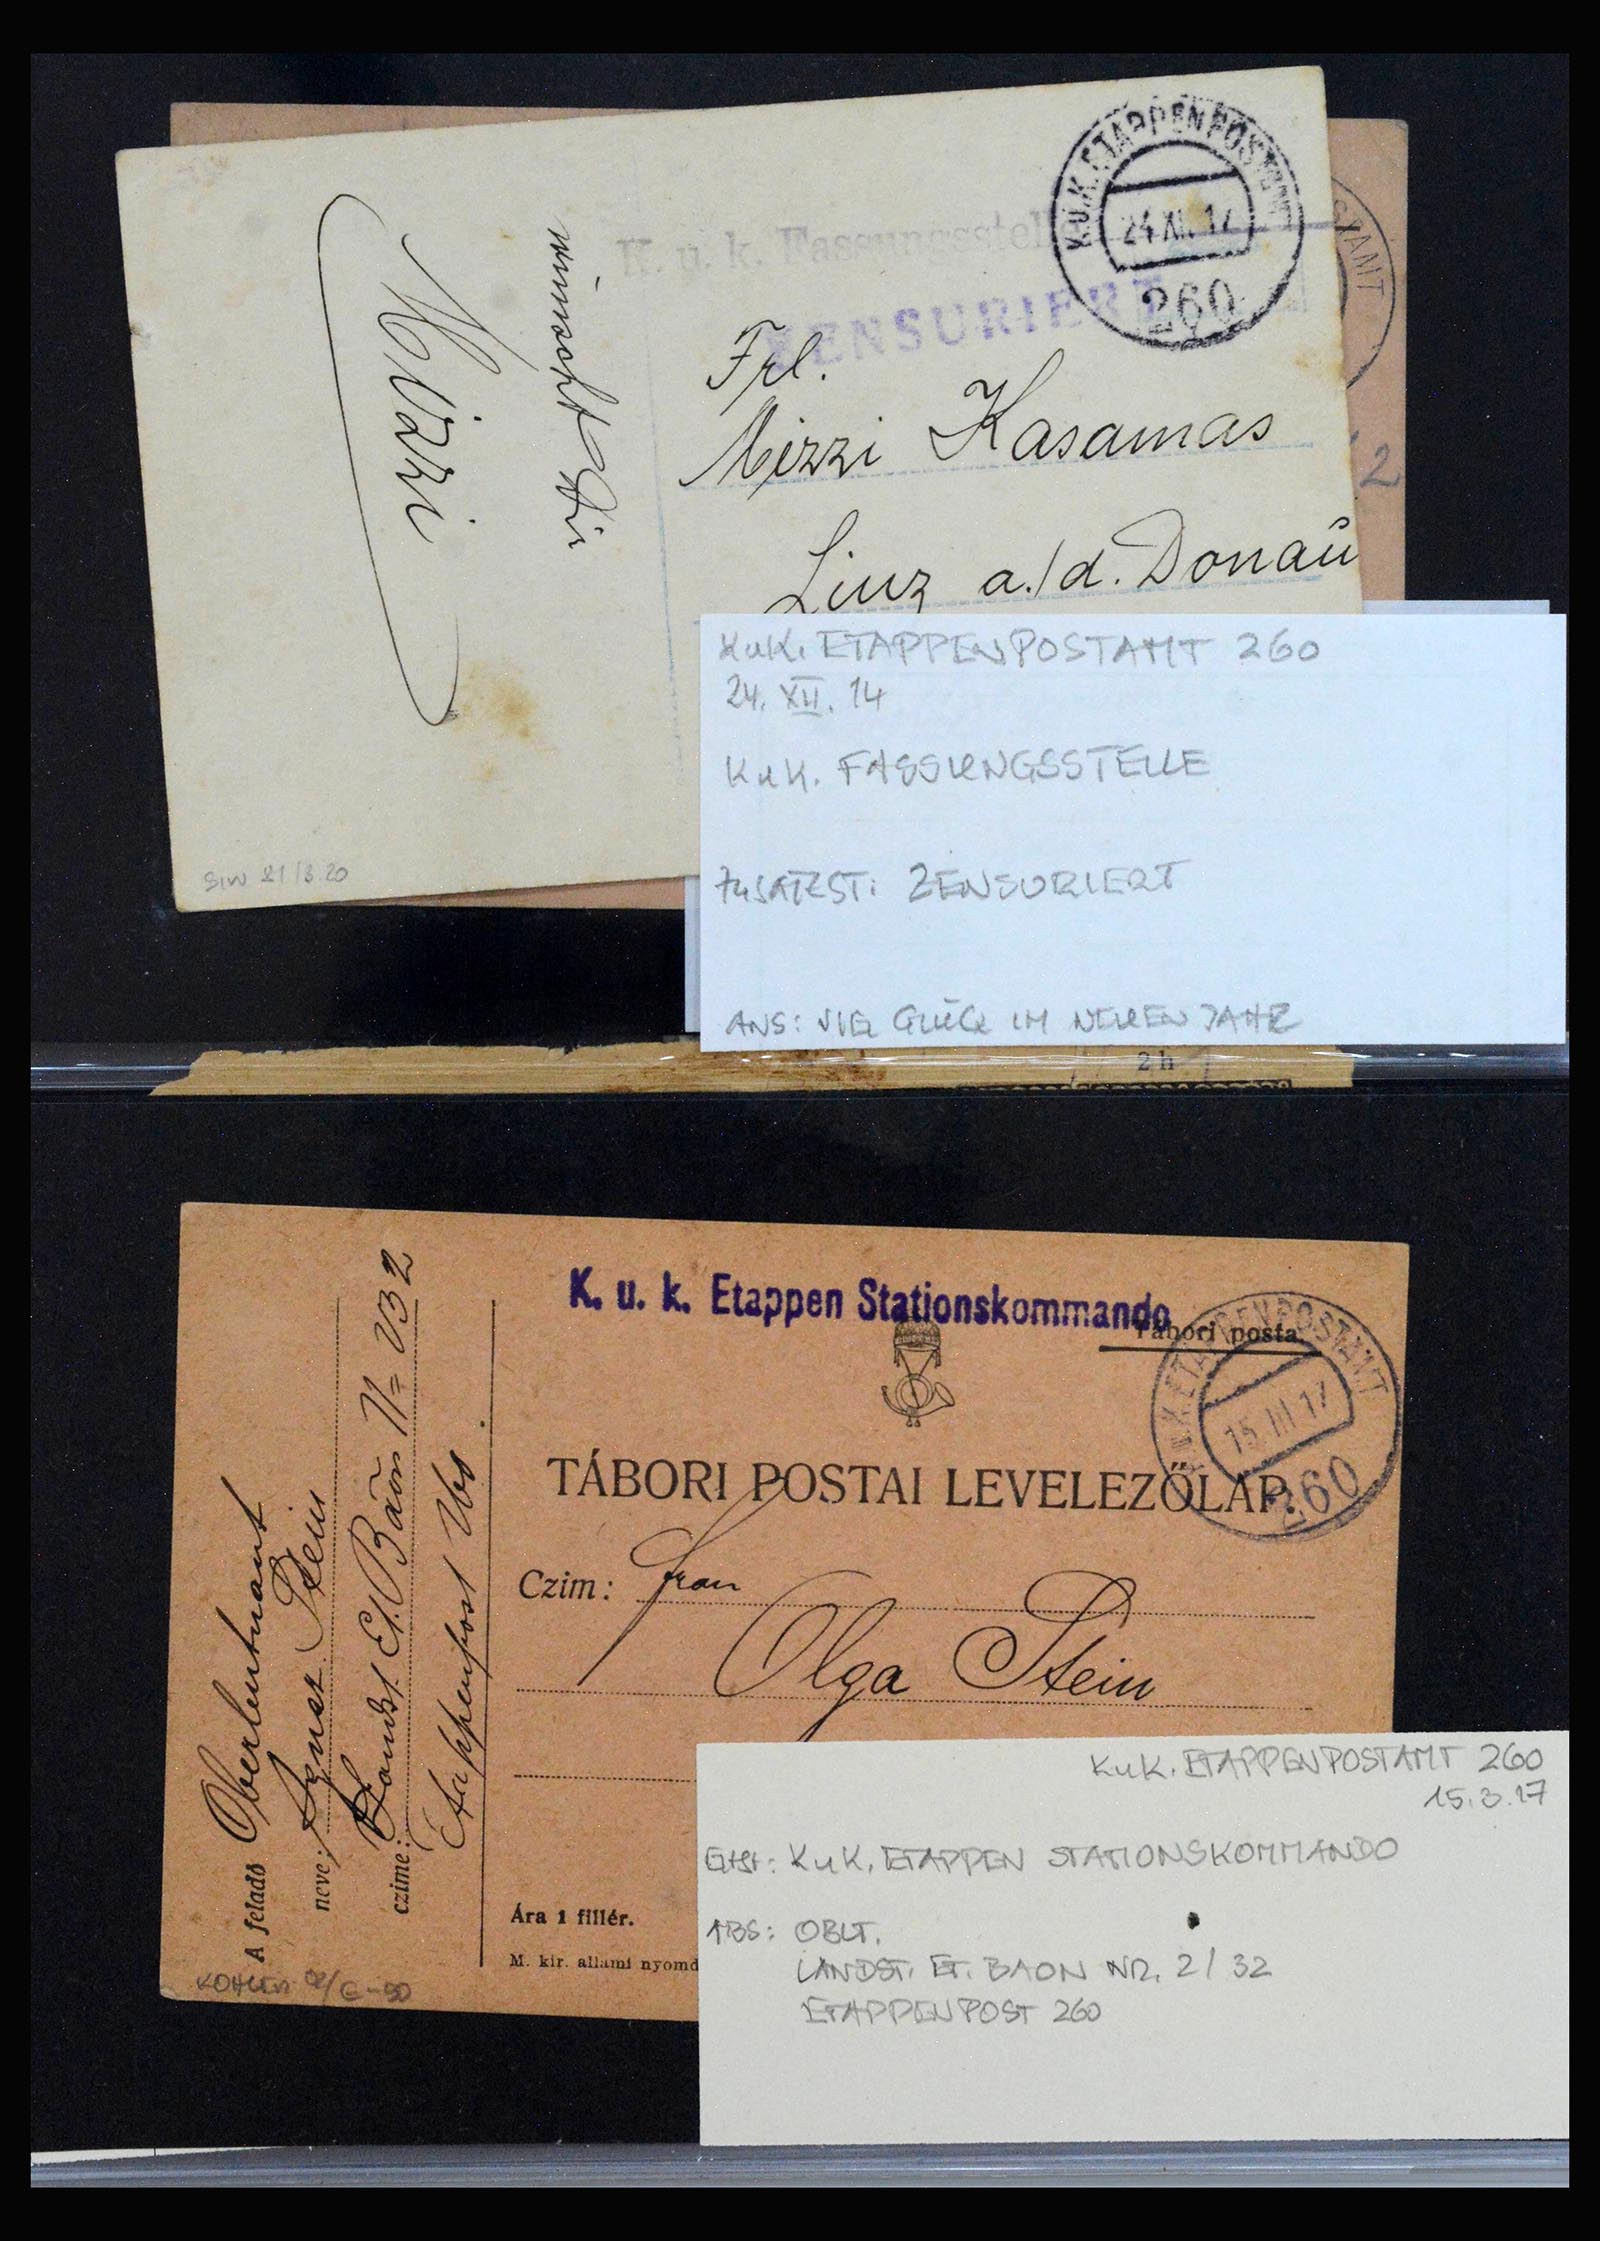 K.u.K. ETAPPENPOSTAMT
24.XII.17
260
K. u. k. Fassungsstelle
ZENSURIERT
Frl.
Mizzi Kasamas
Linz a./d. Donau
wünscht Dir
Mizzi
STAMT
2
SIW 21/3.20
KuK. ETAPPENPOSTAMT 260
24. XII. 14
KuK. FASSUNGSSTELLE
ZUSATZST: ZENSURIERT
ANS: VIEL GLÜCK IM NEUEN JAHR
2 h
K. u. k. Etappen Stationskommando
Tábori posta.
K.u.K. ETAPPENPOSTAMT
15.III.17
260
TÁBORI POSTAI LEVELEZŐLAP.
Czim: Frau
Olga Stein
A feladó Oberleutnant
neve: Stein
czime: Landst. Et. Baon N= 2
Etappenpost
Ára 1 fillér.
M. kir. állami nyomd
KuK. ETAPPENPOSTAMT 260
15.3.17
KuK. ETAPPEN STATIONSKOMMANDO
ABS: OBLT.
LANDST. ET. BAON NR. 2/32
ETAPPENPOST 260